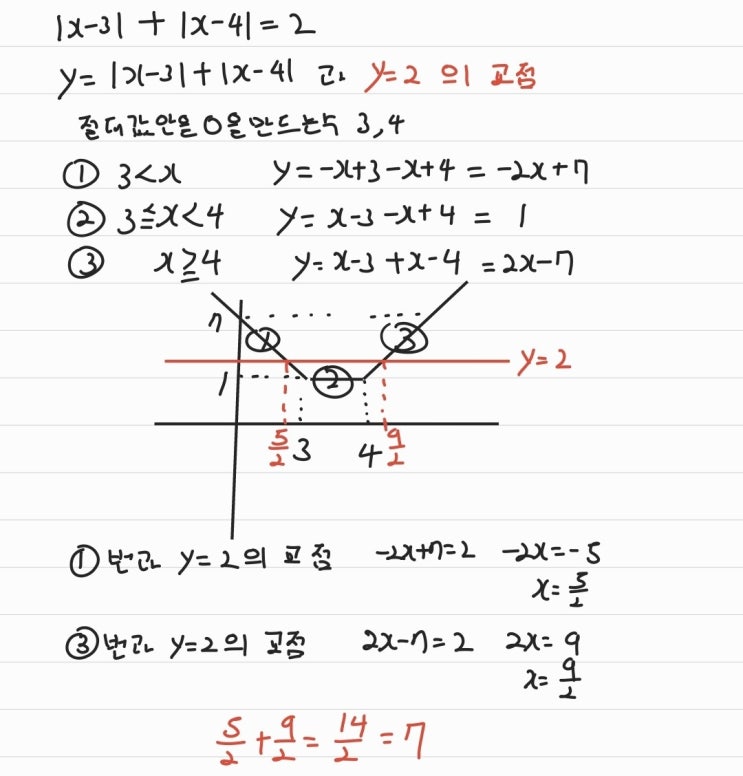 |x-3| + |x-4| = 2
y = |x-3| + |x-4| 과 y=2 의 교점
절대값안을 0을 만드는수 3,4
① 3<x y = -x+3-x+4 = -2x+7
② 3≦x<4 y = x-3-x+4 = 1
③ x≧4 y = x-3+x-4 = 2x-7
7 ① ③
y=2
1 ②
5/2 3 4 9/2
①번과 y=2의 교점 -2x+7=2 -2x=-5
x=5/2
③번과 y=2의 교점 2x-7=2 2x=9
x=9/2
5/2 + 9/2 = 14/2 = 7